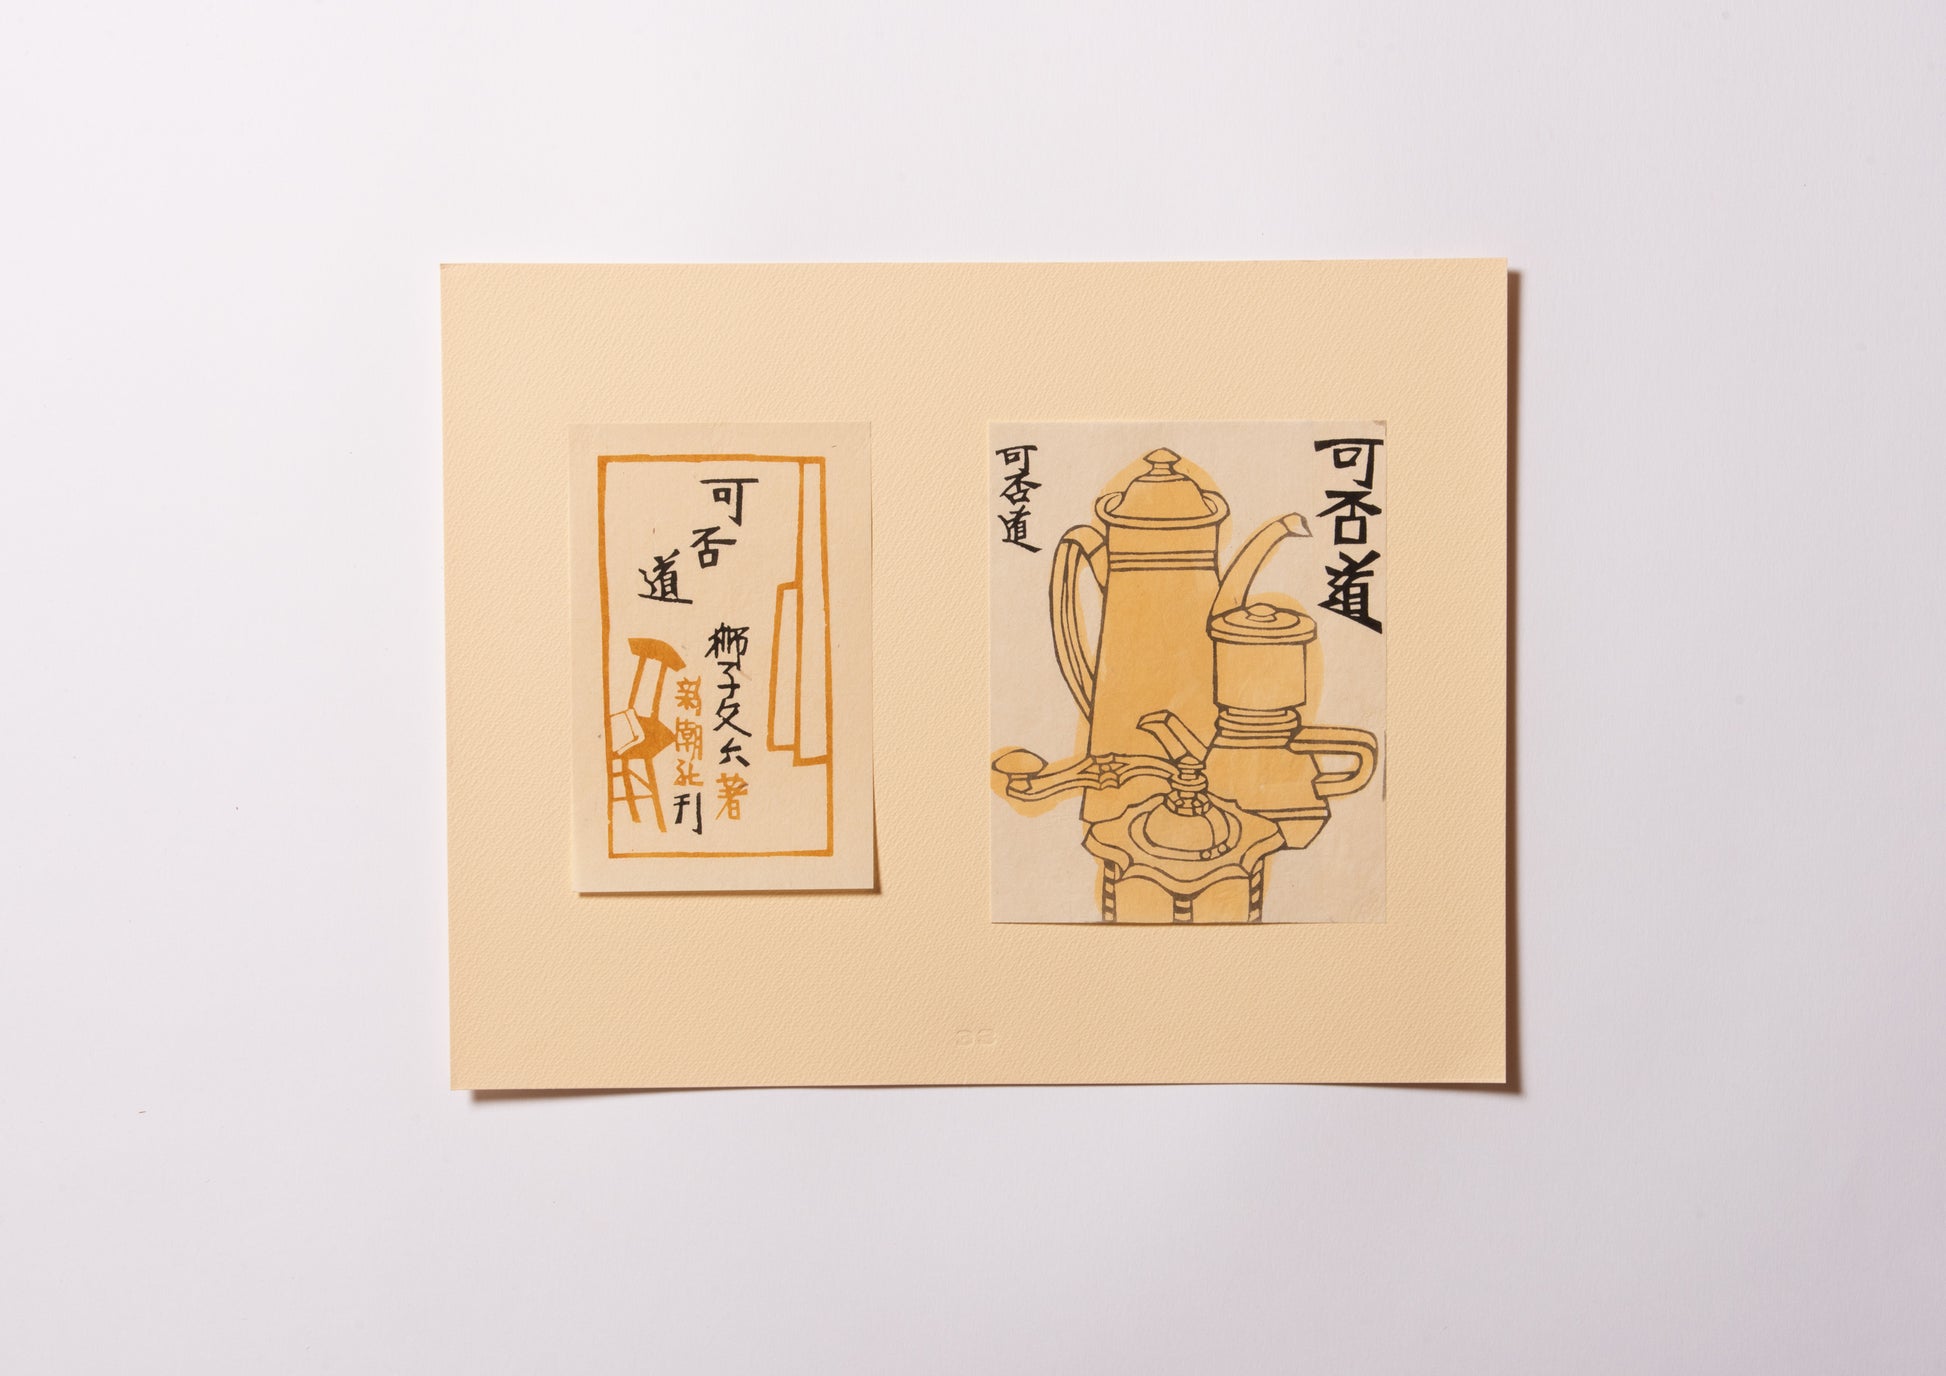 可否道
獅子文六著
新潮社刊
可否道
可否道
38